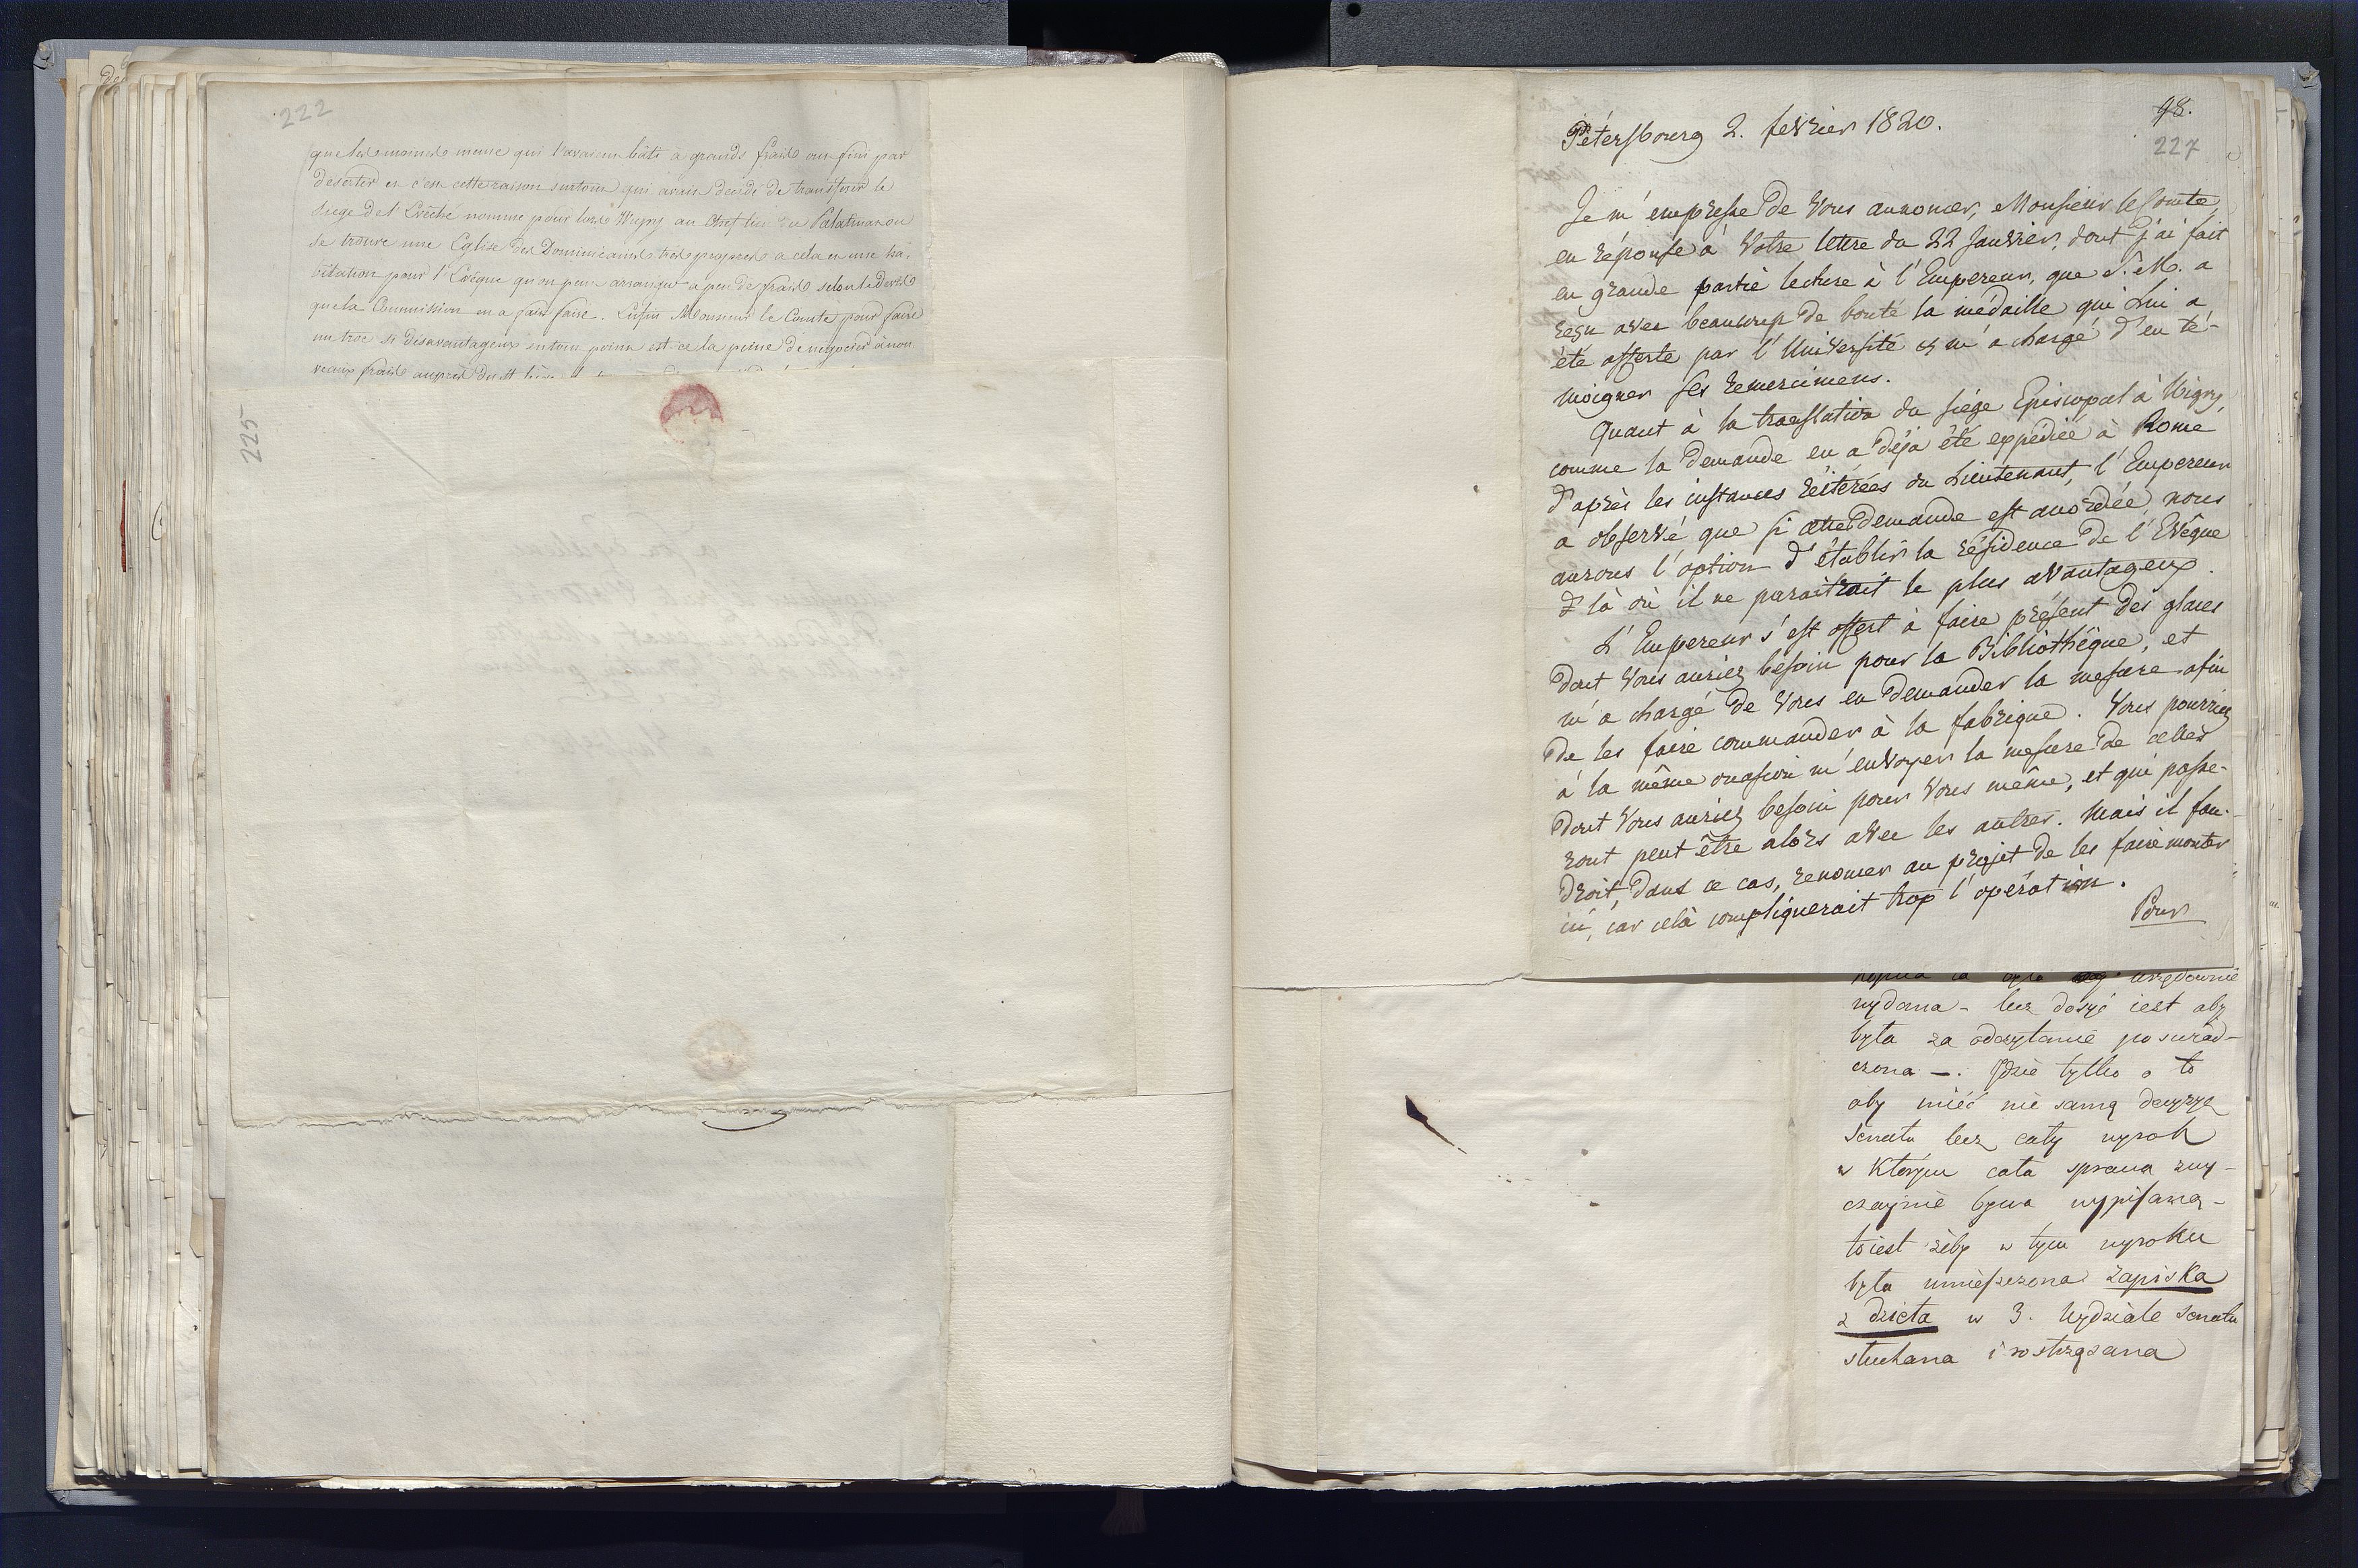 222
que les moines meme qui l'avaient bâti à grands frais ont fini par
deserter et c'est cette raison surtout qui avait decidé de transferer le
siege de l'Evêché nommé pour lors Wigry au Chef lieu du Palatinat ou
se trouve une Eglise des Dominicains très propre à cela et une ha-
bitation pour l'Evêque qu'on peut arranger à peu de frais selon le devis
que la Commission en a fait faire. Enfin Monsieur le Comte pour faire
un troc si désavantageux en tout point est-ce la peine de negocier à nou-
veaux frais auprès du St
225
Pétersbourg 2. fevrier 1820.
98.
227
Je m'empresse de Vous annoncer, Monsieur le Comte
en réponse à Votre lettre du 22 Janvier, dont j'ai fait
en grande partie lecture à l'Empereur, que S. M. a
reçu avec beaucoup de bonté la médaille qui Lui a
été offerte par l'Université et m'a chargé d'en té-
moigner ses remercimens.
Quant à la translation du siège Episcopal à Wigry,
comme la demande en a déja été expédiée à Rome
d'après les instances réiterées du Lieutenant, l'Empereur
a observé que si cette demande est accordée, nous
aurons l'option d'établir la résidence de l'Evêque
là où il ne paraitrait le plus avantageux.
L'Empereur s'est offert à faire présent des glaces
dont Vous auriez besoin pour la Bibliothéque, et
m'a chargé de Vous en demander la mesure afin
de les faire commander à la fabrique. Vous pourriez
à la même occasion m'envoyer la mesure de celles
dont Vous auriez besoin pour Vous même, et qui passe-
ront peut être alors avec les autres. Mais il fau-
droit, dans ce cas, renoncer au projet de les faire monter
ici, car celà compliquerait trop l'opération.
Pour
urzędownie
wydana - lecz dosyć iest aby
była za odczytanie poświad-
czona -. Jdzie tylko o to
aby mieć nie samą decyzyę
Senatu lecz cały wyrok
w którym cała sprawa zwy-
czaynie bywa wypisaną -
toiest żeby w tym wyroku
była umieszczona zapiska
z dzieła w 3. Wydziale Senatu
słuchana i rostrząsana